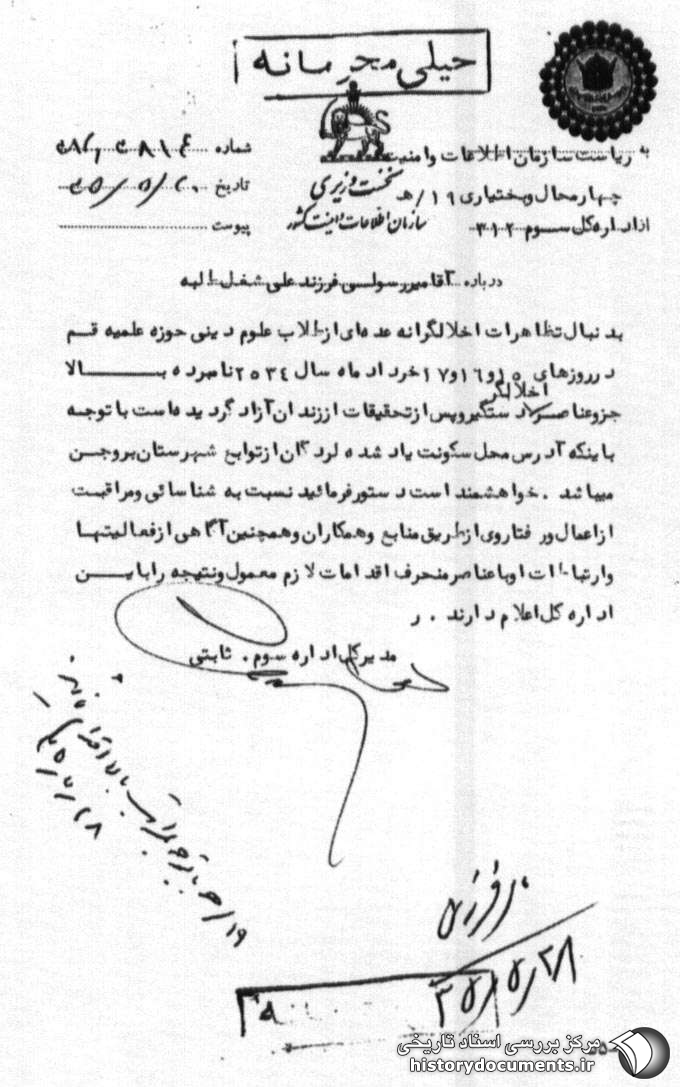 خیلی محرمانه
نخست وزیری
سازمان اطلاعات و امنیت کشور
به ریاست سازمان اطلاعات وامنیت
چهارمحال وبختیاری ۱۹/هـ
از اداره کل سوم ۳۱۲
شماره
تاریخ
پیوست
درباره آقامیر رسولی فرزند علی شغل طلبه
بدنبال تظاهرات اخلالگرانه عده‌ای از طلاب علوم دینی حوزه علمیه قم
در روزهای ۱۵ و ۱۶ و ۱۷ خرداد ماه سال ۲۵۳۴ نامبرده بالا
جزو عناصر اخلالگر دستگیر و پس از تحقیقات از زندان آزاد گردیده است با توجه
باینکه آدرس محل سکونت یاد شده لردگان از توابع شهرستان بروجن
میباشد . خواهشمند است دستور فرمائید نسبت به شناسائی ومراقبت
از اعمال ورفتار وی از طریق منابع وهمکاران وهمچنین آگاهی از فعالیتها
وارتباطات او با عناصر منحرف اقدامات لازم معمول ونتیجه را باین
اداره کل اعلام دارند . ر
مدیر کل اداره سوم . ثابتی
مرکز بررسی اسناد تاریخی
historydocuments.ir